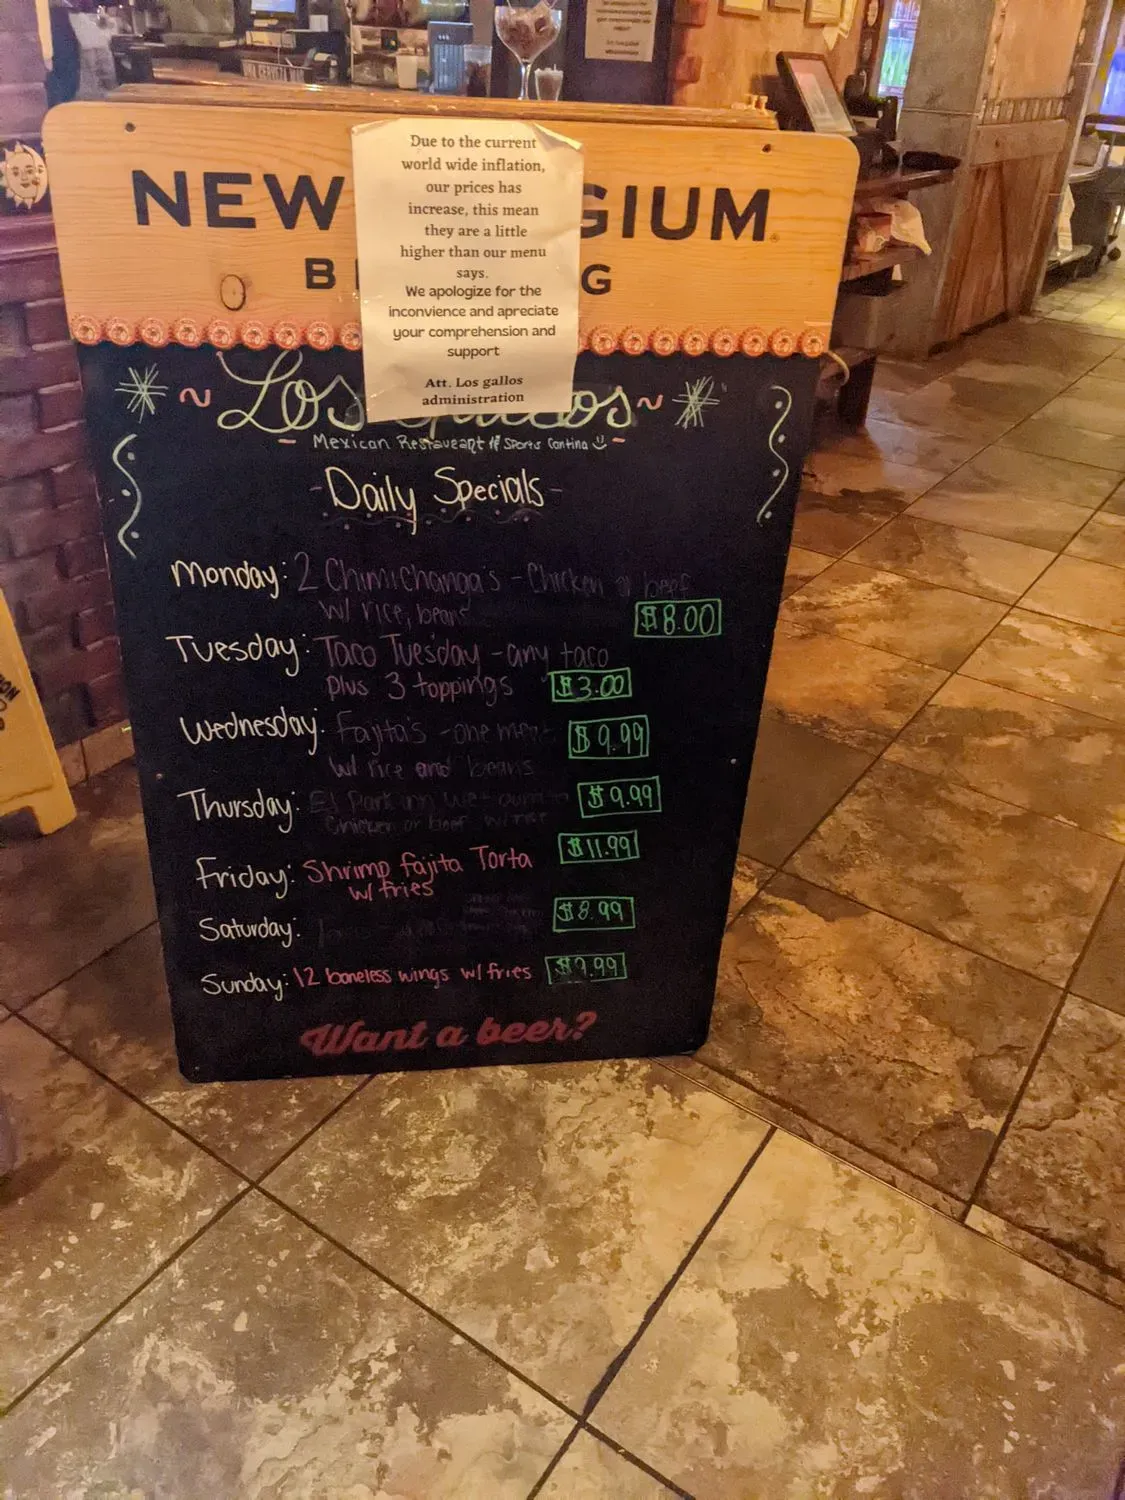 NEW GIUM
B G
Due to the current
world wide inflation,
our prices has
increase, this mean
they are a little
higher than our menu
says.
We apologize for the
inconvience and apreciate
your comprehension and
support
Att. Los gallos
administration
~ Los ~
Mexican Restaurant & Sports Cantina
- Daily Specials -
Monday: 2 Chimichanga's - Chicken or beef
w/ rice, beans $8.00
Tuesday: Taco Tuesday - any taco
plus 3 toppings $3.00
Wednesday: Fajita's - one meat $9.99
w/ rice and beans
Thursday: El Parkinn wet $9.99
Chicken or beef w/ rice
Friday: Shrimp fajita Torta $11.99
w/ fries
Saturday: $8.99
Sunday: 12 boneless wings w/ fries $9.99
Want a beer?